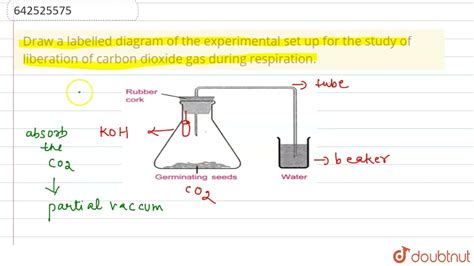 642525575
Draw a labelled diagram of the experimental set up for the study of
liberation of carbon dioxide gas during respiration.
Rubber
cork
tube
absorb
the
CO2
KOH
beaker
Germinating seeds
Water
CO2
partial vaccum
doubtnut